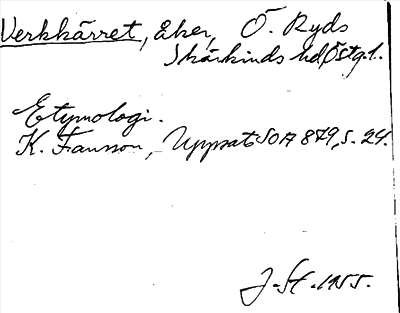 Verkkärret, åker, Ö. Ryds
Skärkinds hd Östg.l.
Etymologi.
K. Fransson, Uppsats SOA 879, s. 24.
J. St. 1955.